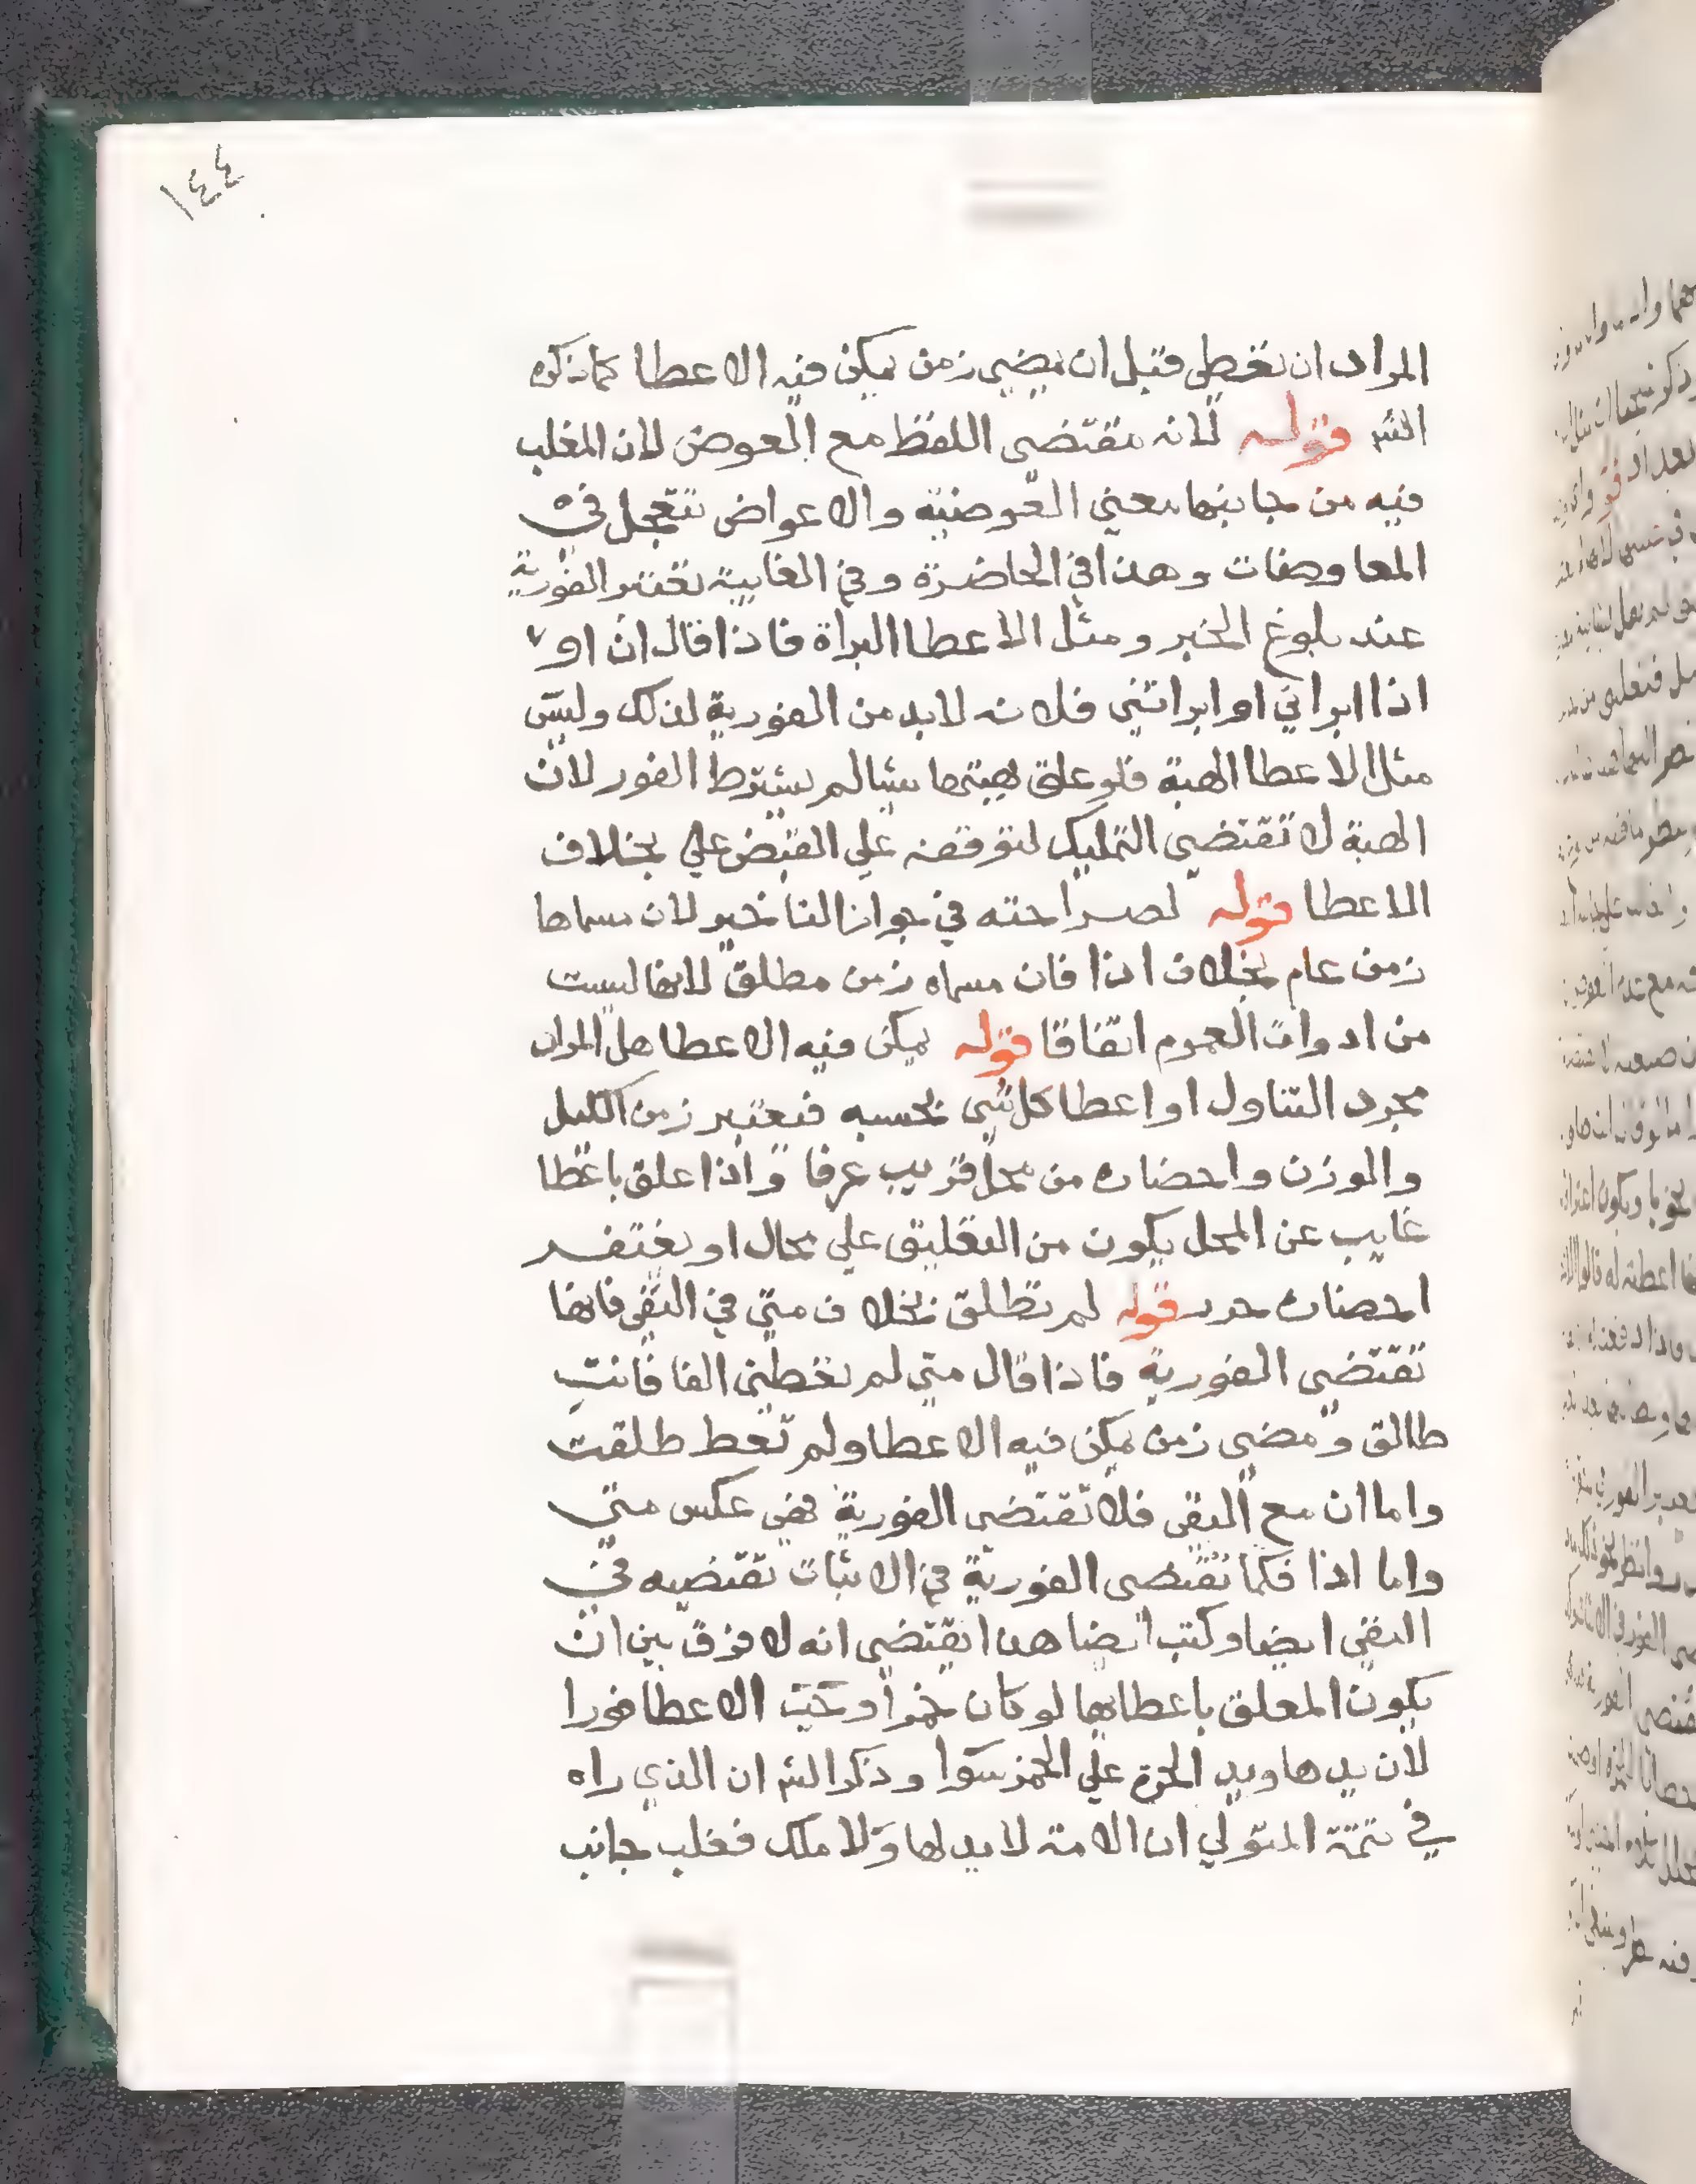 ١٤٤
المراد ان تعطى قبل ان يمضى زمن يمكن فيه الاعطا كما ذكره
الشر قوله لانه مقتضى اللفظ مع العوض لان المغلب
فيه من جانبها معنى العوضية والاعواض تتعجل في
المعاوضات وهذا في الحاضرة وفي الغايبة تعتبر الفورية
عند بلوغ الخبر ومثل الاعطا البراة فاذا قال ان او
اذا ابراتي او ابراتني فلانه لابد من الفورية لذلك وليس
مثل الاعطا الهبة فلو علق هبتها شيا لم يشترط الفور لان
الهبة لا تقتضي التمليك لتوقفه على القبض علي بخلاف
الاعطا قوله لصراحته في جواز التاخير لان مسماها
زمن عام بخلاف اذا فان مسماه زمن مطلق لانها ليست
من ادوات العموم اتفاقا قوله يمكن فيه الاعطا هل المراد
مجرد التناول او اعطا كل شي بحسبه فيعتبر زمن الكيل
والوزن واحضاره من محل قريب عرفا واذا علق باعطا
غايب عن المحل يكون من التعليق علي محال او يغتفر
احضاره حرر قوله لم تطلق بخلاف متي في النفى فانها
تقتضي الفورية فاذا قال متي لم تعطنى الفا فانت
طالق ومضى زمن يمكن فيه الاعطا ولم تعط طلقت
واما ان مع النفى فلا تقتضى الفورية فهي عكس متي
واما اذا فكما تقتضى الفورية في الاثبات تقتضيه في
النفى ايضا وكتب ايضا هذا يقتضي انه لا فرق بين ان
يكون المعلق باعطايها لو كان خمرا وتحت الاعطا فورا
لان يدها ويد الحرة علي الخمر سوا وذكر الشر ان الذي راه
في تتمة المتولي ان الامة لا يد لها ولا ملك فغلب جانب